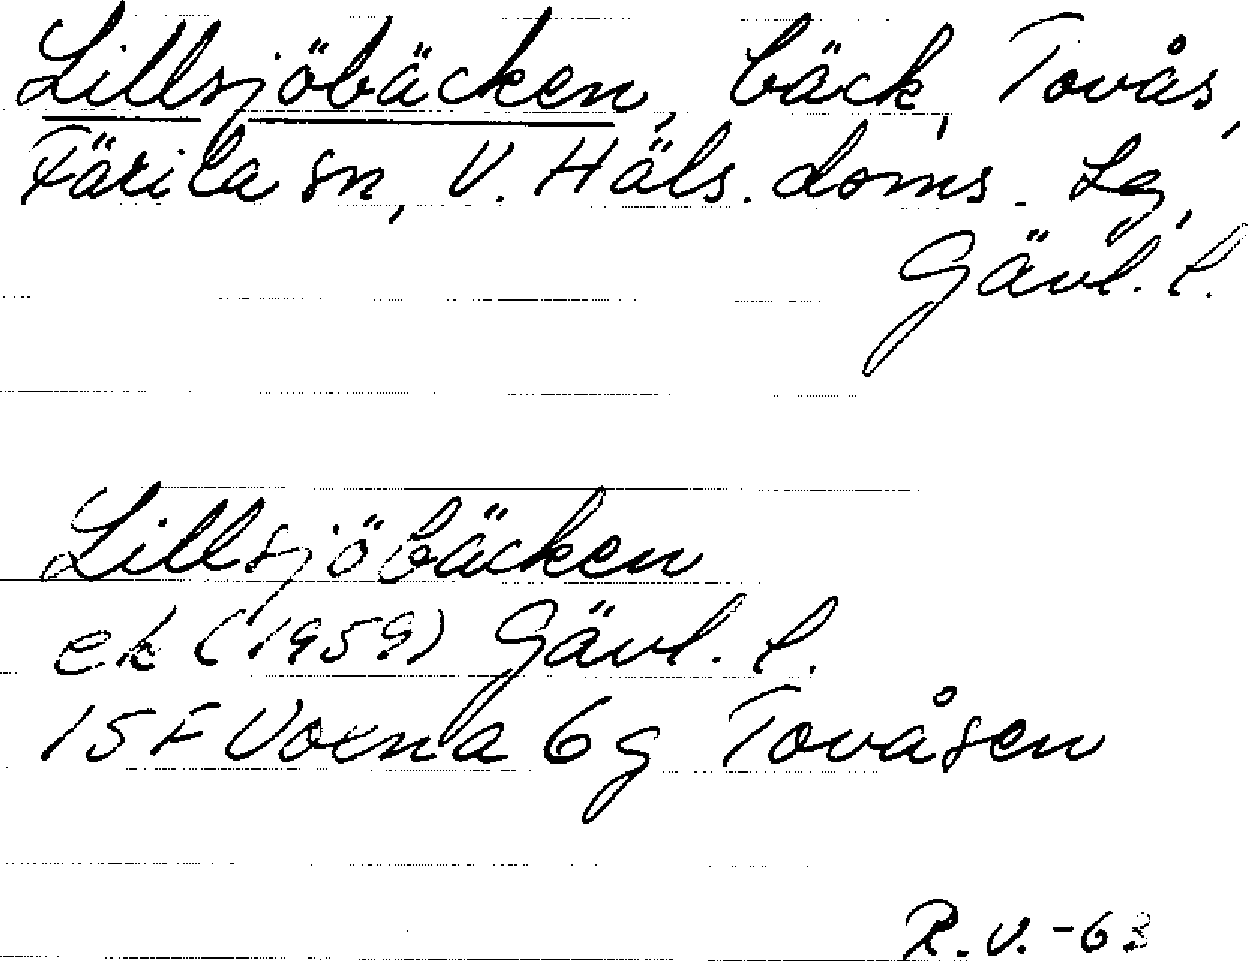 Lillsjöbäcken, bäck, Tovås,
Färila sn, V. Häls. doms. Lg,
Gävl. l.
Lillsjöbäcken
ek (1959) Gävl. l.
15F Voxna 6g Tovåsen
R.V. -63